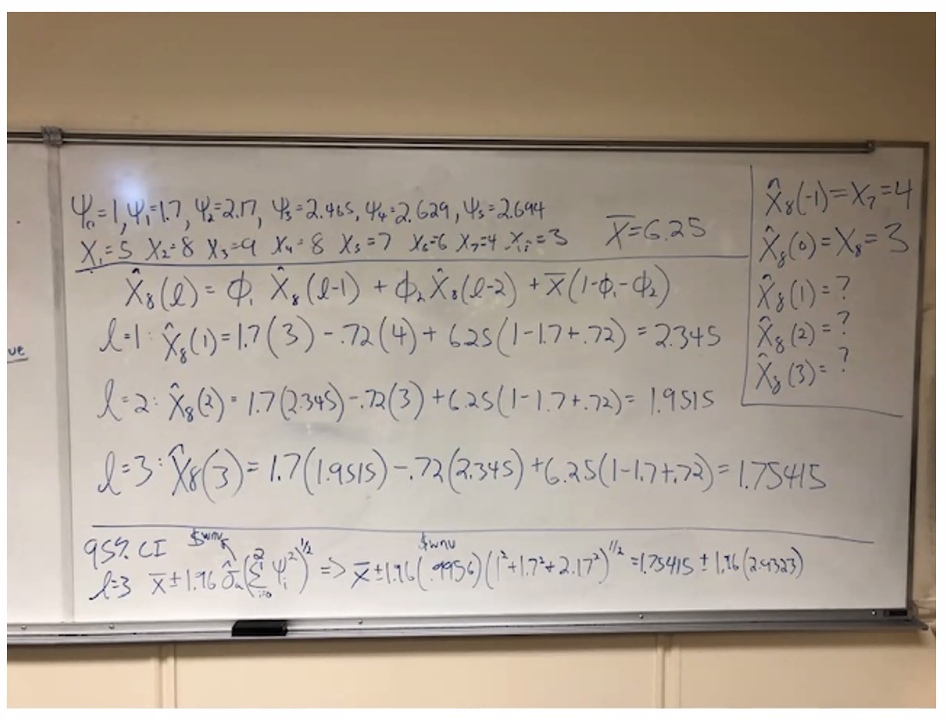 ue
Ψ₀=1, Ψ₁=1.7, Ψ₂=2.17, Ψ₃=2.465, Ψ₄=2.629, Ψ₅=2.694
X₁=5 X₂=8 X₃=9 X₄=8 X₅=7 X₆=6 X₇=4 X₈=3 X̄=6.25
X̂₈(l) = ϕ₁ X̂₈(l-1) + ϕ₂ X̂₈(l-2) + X̄(1-ϕ₁-ϕ₂)
l=1: X̂₈(1) = 1.7(3) - .72(4) + 6.25(1-1.7+.72) = 2.345
l=2: X̂₈(2) = 1.7(2.345) - .72(3) + 6.25(1-1.7+.72) = 1.9515
l=3: X̂₈(3) = 1.7(1.9515) - .72(2.345) + 6.25(1-1.7+.72) = 1.75415
X̂₈(-1) = X₇ = 4
X̂₈(0) = X₈ = 3
X̂₈(1) = ?
X̂₈(2) = ?
X̂₈(3) = ?
95% CI $wnv $wnv
l=3 X̄ ± 1.96 σ̂ₐ(∑ᵢ₌₀² Ψᵢ²)^1/2 => X̄ ± 1.96(.9956)(1²+1.7²+2.17²)^1/2 = 1.75415 ± 1.96(2.9323)